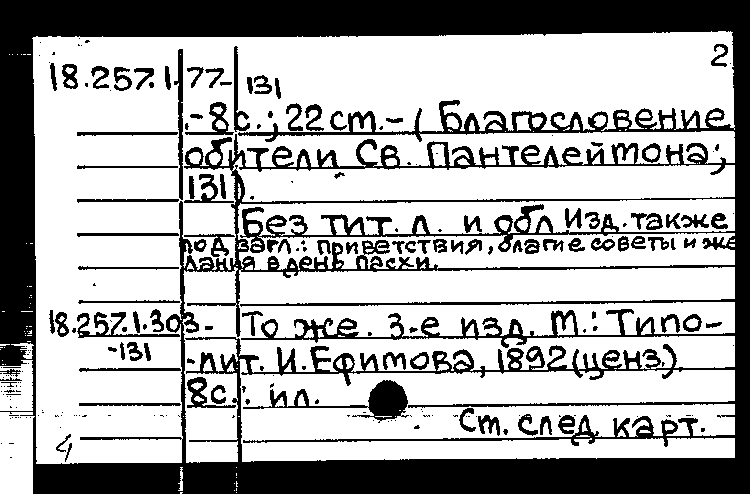 2
18.257.1.77-
131
.-8с.; 22 cm.-( Благословение
обители Св. Пантелеймона;
131).
Без тит. л. и обл Изд. также
под загл.: приветствия, благие советы и же
лания в день пасхи.
18.257.1.303- То же. 3-е изд. М.: Типо-
-131 -лит. И. Ефимова, 1892 (ценз.).
8с.: ил.
Ст. след. карт.
4